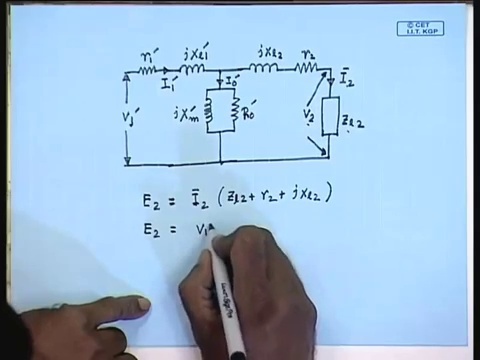 © CET
I.I.T. KGP
r₁′ jxₗ₁′ jxₗ₂ r₂
I₁′ I₀′ Ī₂
V₁′ jx′ₘ R₀′ V₂ Zₗ₂
E₂ = Ī₂ (Zₗ₂ + r₂ + jxₗ₂)
E₂ = V₁